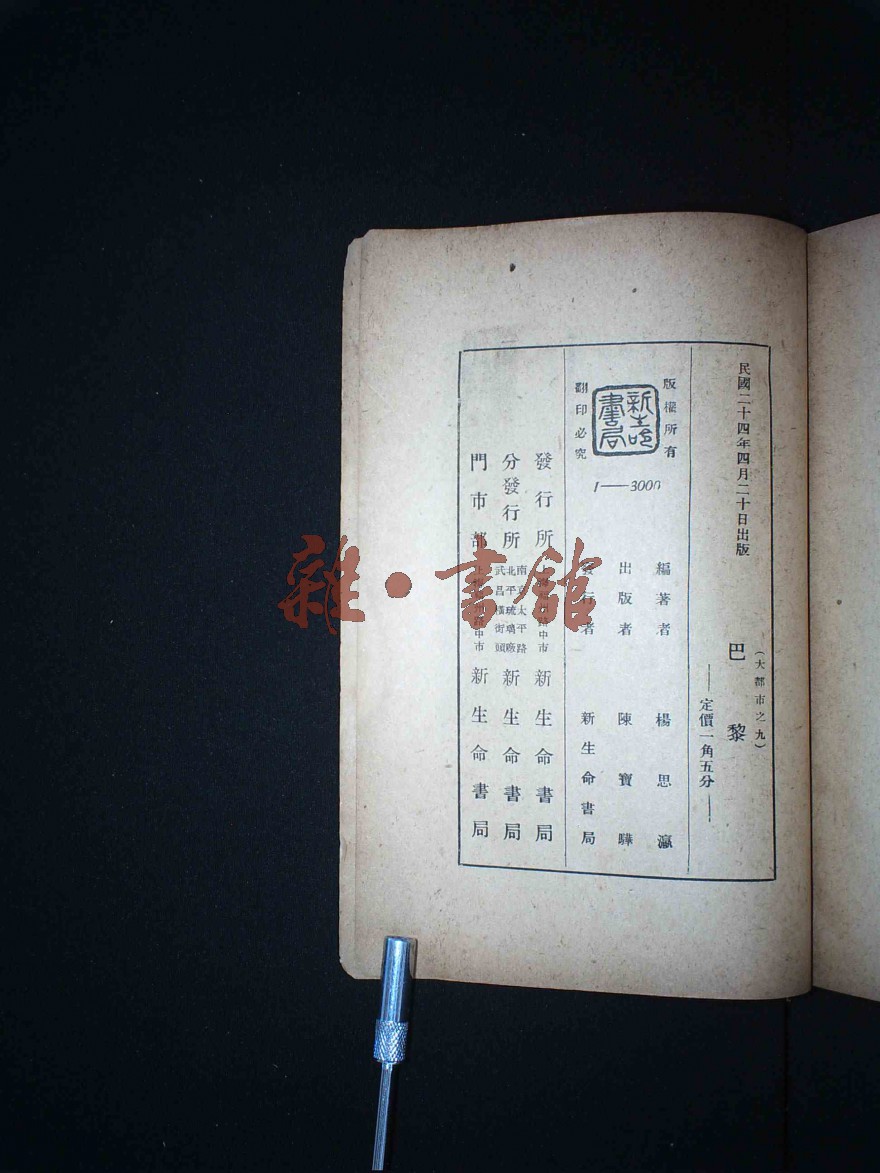 民國二十四年四月二十日出版
(大都市之九)
巴黎
——定價一角五分——
版權所有
新生命書局
翻印必究
1——3000
編著者 楊思瀛
出版者 陳寶驊
發行者 新生命書局
發行所 上海福州路中市 新生命書局
分發行所
南京太平路
北平琉璃廠
武昌橫街頭
新生命書局
門市部 上海福州路中市 新生命書局
雜·書館